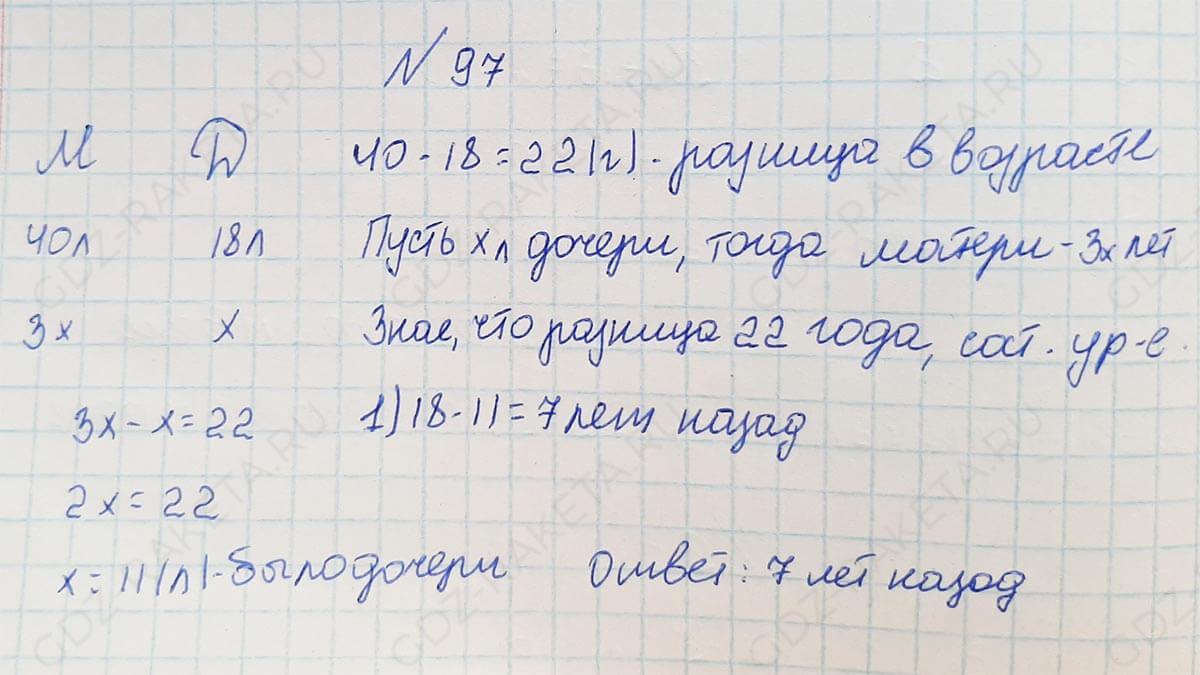 N 97
М Д 40 - 18 = 22 (г) - разница в возрасте
40л 18л Пусть х л дочери, тогда матери - 3х лет
3х х Зная, что разница 22 года, сост. ур-е.
3х - х = 22 1) 18 - 11 = 7 лет назад
2х = 22
х = 11 (л) - было дочери Ответ: 7 лет назад
GDZ-RAKETA.RU